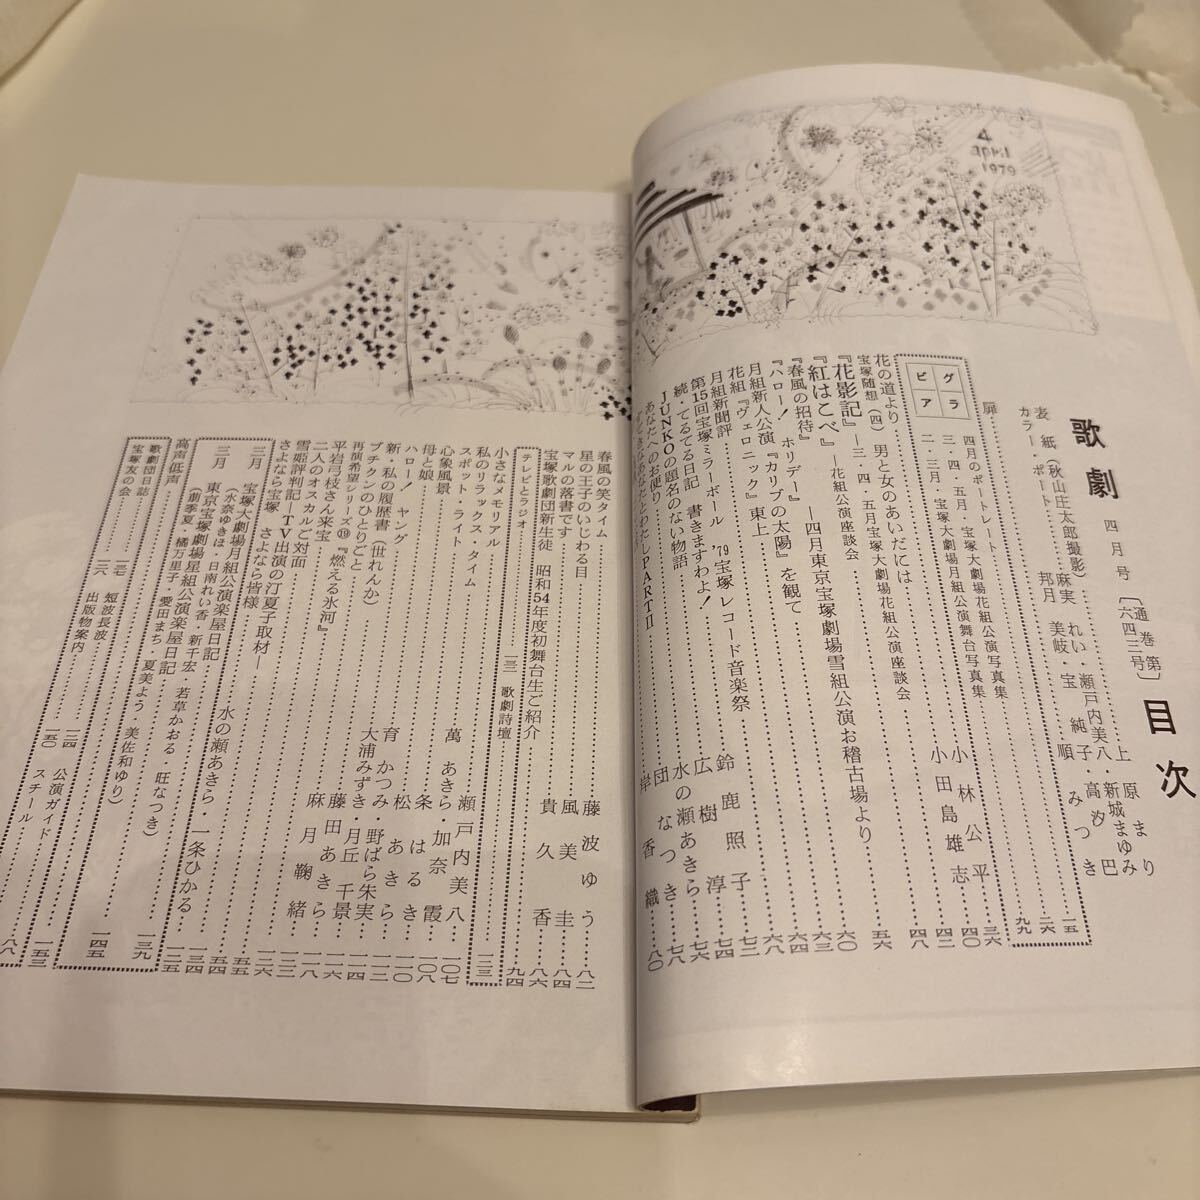 4
april
1979
歌劇 四月号〔通巻第六四三号〕目次
表紙(秋山庄太郎撮影)麻実れい・瀬戸内美八・上原まり
カラー・ポート 邦月美岐・宝純子・新城まゆみ
順みつき
扉 九九
グラビア
四月のポートレート
三・四・五月・宝塚大劇場花組公演写真集
二・三月・宝塚大劇場月組公演舞台写真集
花の道より 小林公平 四〇
宝塚随想(四)男と女のあいだには 小田島雄志 四二
『花影記』―三・四・五月宝塚大劇場花組公演座談会 四八
『紅はこべ』―花組公演座談会 五六
『春風の招待』
『ハロー!ホリデー』―四月東京宝塚劇場雪組公演お稽古場より 六〇
月組新人公演『カリブの太陽』を観て 六三
花組『ヴェロニック』東上 六四
月組新聞評 六八
第15回宝塚ミラーボール '79宝塚レコード音楽祭
続・てるてる日記 書きますわよ! 鈴鹿照子 七三
JUNKOの題名のない物語 広樹淳 七四
あなたへのお便り 水の瀬あきら 七六
団なつき 七八
PARTⅡ 岸香織 八〇
春風の笑タイム 藤波ゆう 八二
星の王子のいじわる目 風美圭 八四
マルの落書です 貴久香 八六
宝塚歌劇団新生徒 昭和54年度初舞台生ご紹介 九四
テレビとラジオ 一三一 歌劇詩壇 一三三
小さなメモリアル
私のリラックス・タイム 瀬戸内美八
スポット・ライト 萬あきら・加奈霞 一〇七
心象風景 条はるき 一〇八
母と娘 松あきら 一一〇
ハロー!ヤング 育かつみ・野ばら朱実 一一二
新・私の履歴書(世れんか) 大浦みずき・月丘千景 一一四
プチクンのひとりごと 藤田あきら 一一六
再演希望シリーズ⑲『燃える氷河』 麻月鞠緒 一一八
平岩弓枝さん来宝
二人のオスカルご対面
雪姫評判記―TV出演の汀夏子取材― 一二六
さよなら宝塚 さよなら皆様 五五
三月 宝塚大劇場月組公演楽屋日記 水の瀬あきら・一条ひかる
(水奈ゆきほ・日南れい香・新千宏・若草かおる・旺なつき) 一三四
三月 東京宝塚劇場星組公演楽屋日記
(萠季夏・橘万里子・愛田まち・夏美よう・美佐和ゆり)
高声低声 一二五
歌劇団日誌 短波長波 一三九
宝塚友の会 出版物案内 一二四 一四五
公演ガイド 一五三
スチール 八八